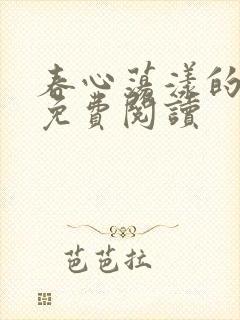 春心蕩漾的
免費閱讀
芭芭拉